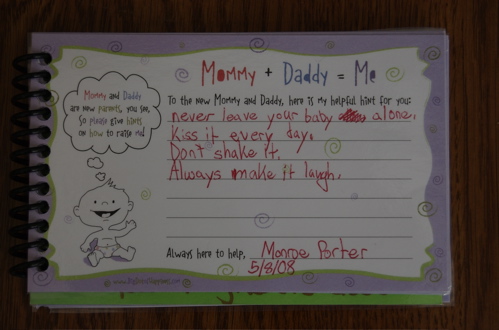 Mommy + Daddy = Me
Mommy and Daddy
are new parents, you see,
So please give hints
on how to raise me!
To the new Mommy and Daddy, here is my helpful hint for you:
never leave your baby alone.
Kiss it every day.
Don't shake it.
Always make it laugh.
Always here to help, Monroe Porter
5/8/08